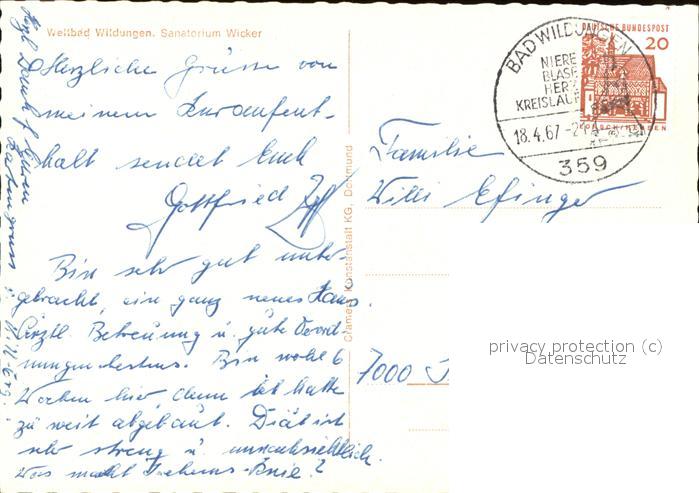 Weltbad Wildungen. Sanatorium Wicker
Herzliche Grüsse von
meinem Kuraufent-
halt sendet Euch
Gottfried
Bin sehr gut unter-
gebracht, ein ganz neues Haus.
Ärztl. Betreuung u. gute Verord-
nungen bestens. Bin wohl 6
Wochen hier, denn ich hatte
zu weit abgebaut. Diät ist
sehr streng u. unnachsichtlich.
Was macht Jochens Knie?
Cramers Kunstanstalt KG, Dortmund
BAD WILDUNGEN
NIERE
BLASE
HERZ
KREISLAUF
18.4.67
359
DEUTSCHE BUNDESPOST
20
LORSCH/HESSEN
Familie
Willi Efinger
7000
privacy protection (c)
Datenschutz